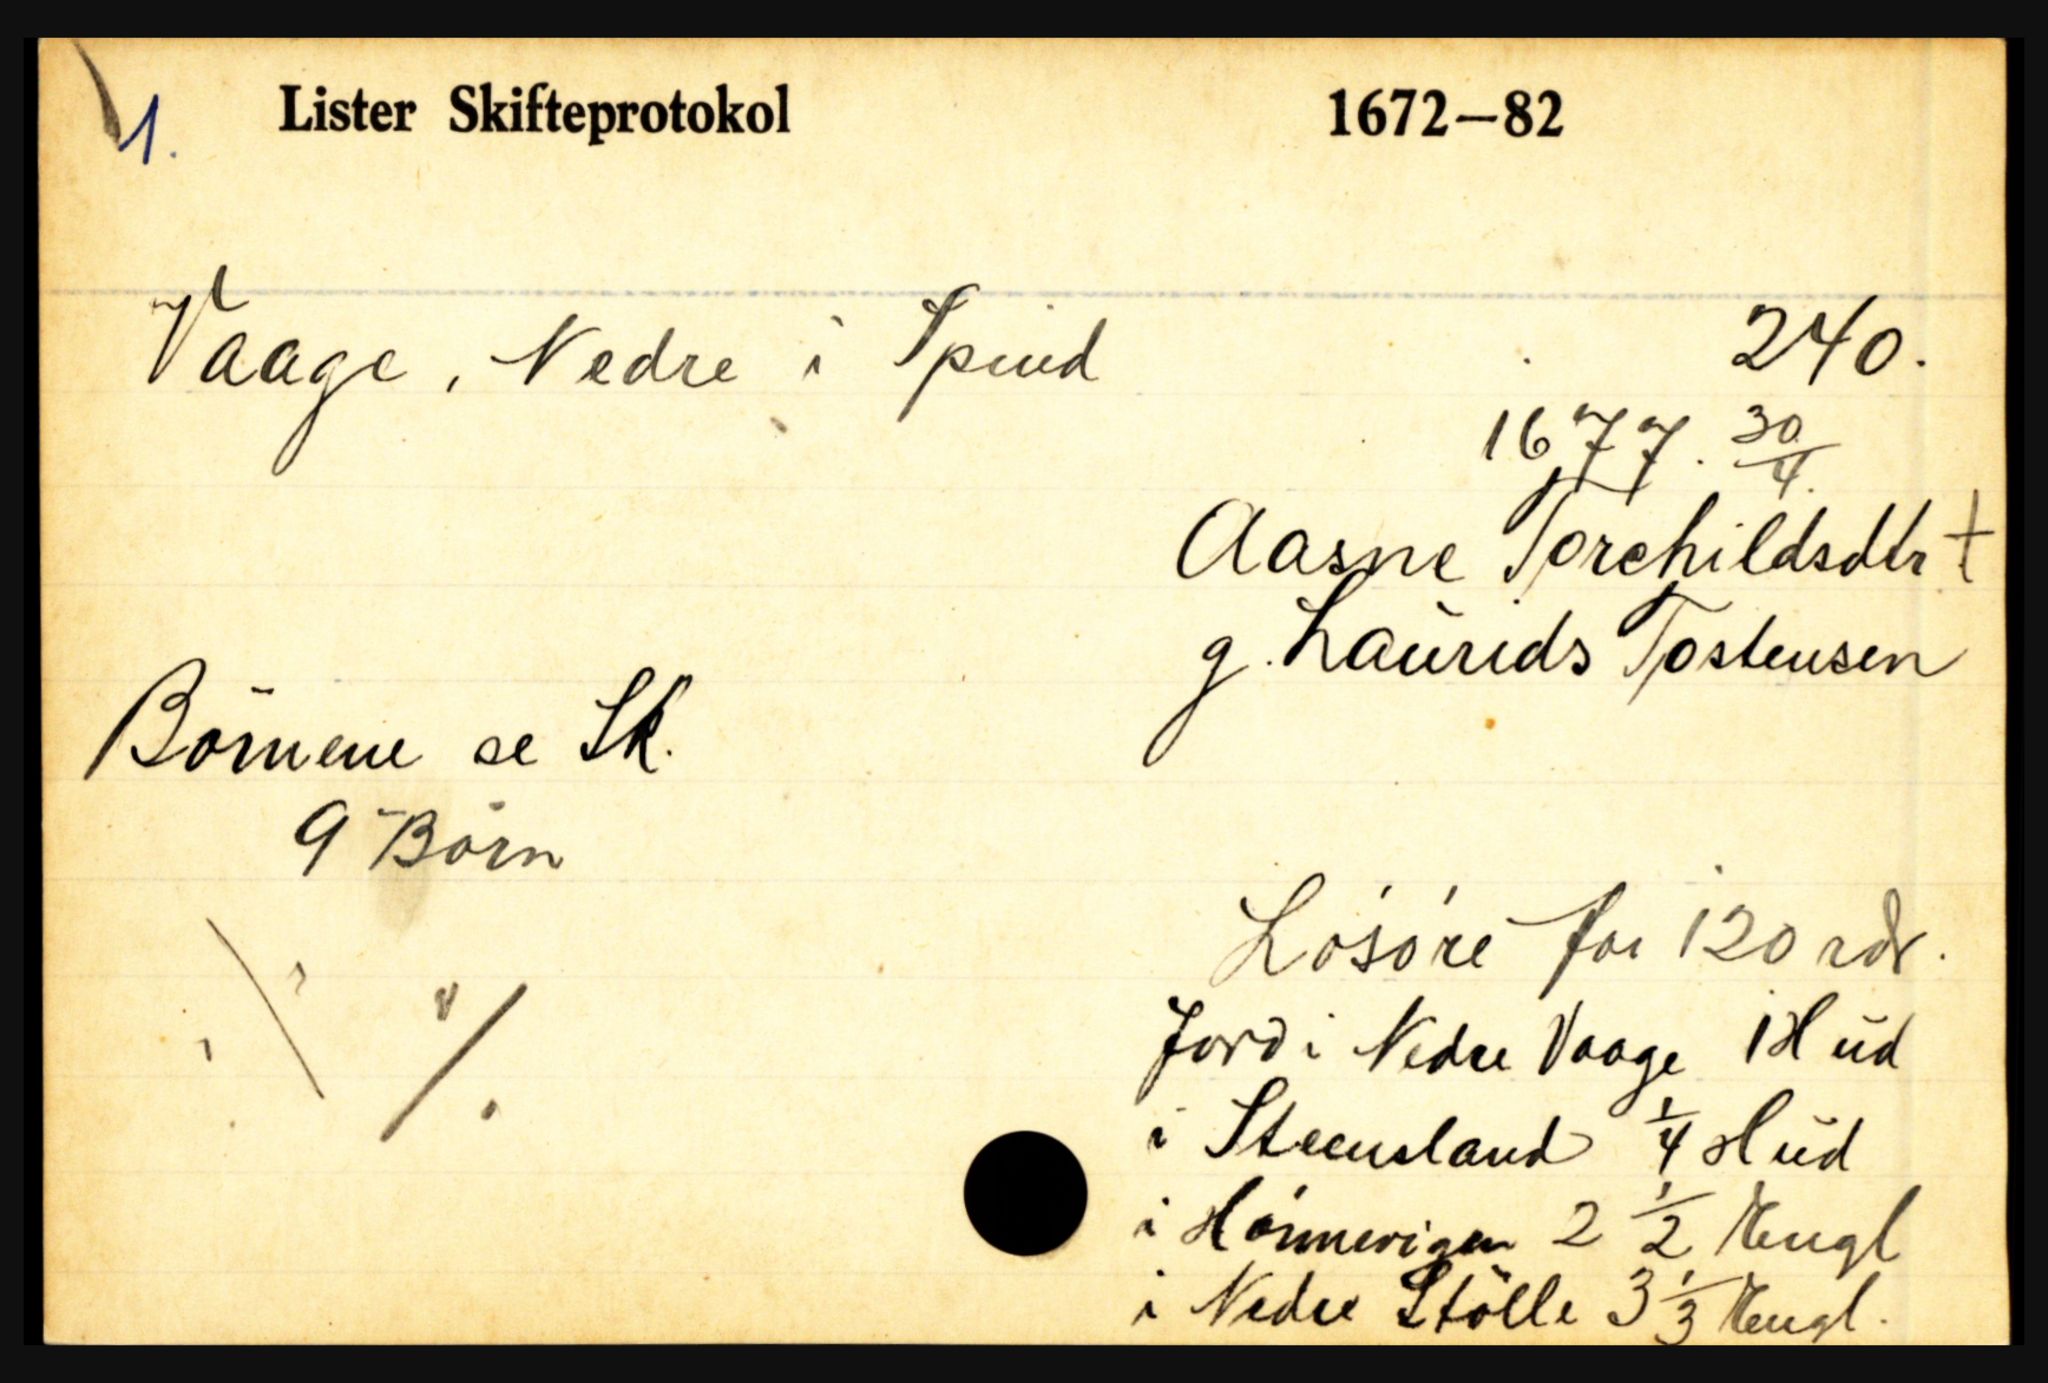 1. Lister Skifteprotokol 1672–82
Vaage, Nedre i Spind 240.
1677. 30/4.
Aasne Torchildsdtr †
g. Laŭrids Tostensen
Börnene se Sk.
9 Börn
Lösöre for 120 rdr.
Jord i Nedre Vaage 1 Hŭd
i Steensland 1/4 Hŭd
i 2 1/2 Engl
i Nedre Stölle 3 1/3 Engl.